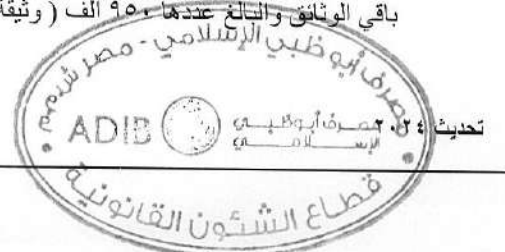 باقي الوثائق والبالغ عددها ٩٥٠ ألف ( وثيقة
مصرف أبو ظبي الإسلامي - مصر ش.م.م
ADIB
مصرف أبوظبي
الإسلامي
تحديث ٢٠٢٤
قطاع الشئون القانونية